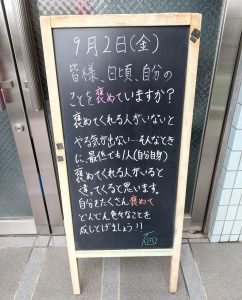 9月2日(金)
皆様、日頃、自分の
ことを褒めていますか?
褒めてくれる人がいないと
やる気が出ない…そんなとき
に、最低でも1人(自分自身)
褒めてくれる人がいると
違ってくると思います。
自分をたくさん褒めて
どんどん色々なことを
成しとげましょう!!